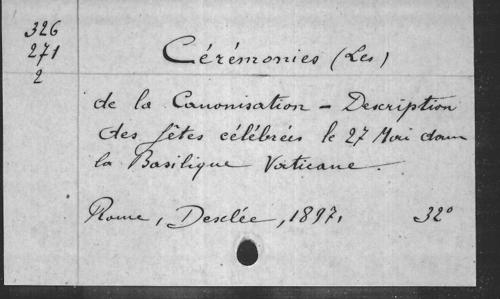 326
271
2
Cérémonies (Les)
de la Canonisation – Description
des fêtes célébrées le 27 Mai dans
la Basilique Vaticane.
Rome, Desclée, 1897, 32°